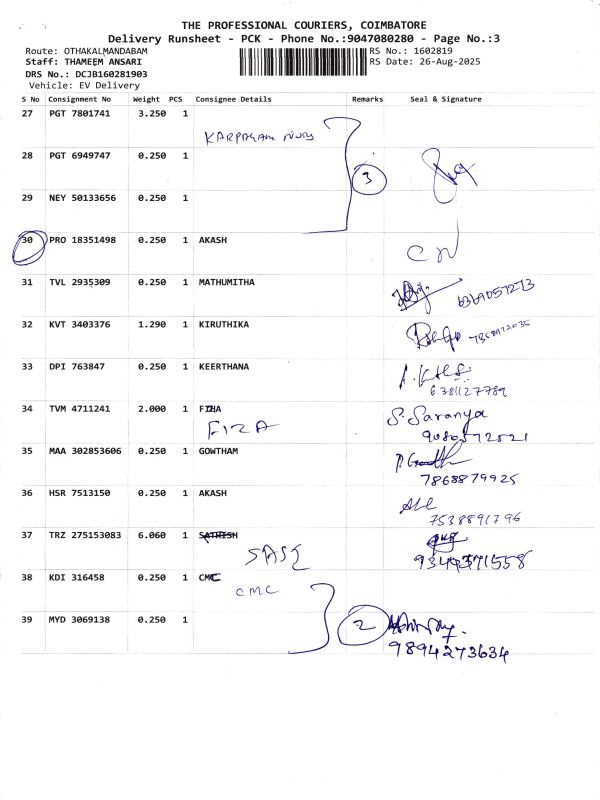 THE PROFESSIONAL COURIERS, COIMBATORE
Delivery Runsheet - PCK - Phone No.:9047080280 - Page No.:3
Route: OTHAKALMANDABAM RS No.: 1602819
Staff: THAMEEM ANSARI RS Date: 26-Aug-2025
DRS No.: DCJB160281903
Vehicle: EV Delivery
S No Consignment No Weight PCS Consignee Details Remarks Seal & Signature
27 PGT 7801741 3.250 1
KARPAGAM
28 PGT 6949747 0.250 1
3
29 NEY 50133656 0.250 1
30 PRO 18351498 0.250 1 AKASH
CN
31 TVL 2935309 0.250 1 MATHUMITHA
6369057273
32 KVT 3403376 1.290 1 KIRUTHIKA
33 DPI 763847 0.250 1 KEERTHANA
6381127789
34 TVM 4711241 2.000 1 FIZHA
FIZA S. Saranya
9080572521
35 MAA 302853606 0.250 1 GOWTHAM
7868879925
36 HSR 7513150 0.250 1 AKASH
7538891796
37 TRZ 275153083 6.060 1 SATHISH
SASI 9344371558
38 KDI 316458 0.250 1 CMC
CMC
39 MYD 3069138 0.250 1
2
9894273634